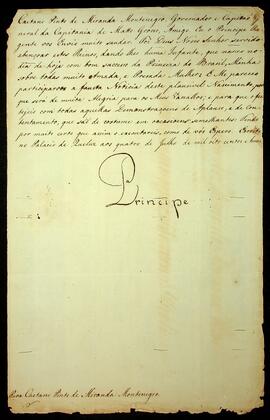 Caetano Pinto de Miranda Montenegro, Governador e Capitão Ge
neral da Capitania de Matto Grosso, Amigo. Eu o Principe Re
gente vos Envio muito saudar. Foi Deus Nosso Senhor servido
abençoar estes Reinos, dando-lhes huma Infante, que nasceo no
dia de hoje com bom successo da Princeza do Brazil, Minha
sobre todas muito Amada, e Prezada Mulher: E Me pareceo
participarvos a fausta Noticia deste plausivel Nascimento, por
que será de muita Alegria para os Meus Vassallos; e para que o fes
tejeis com todas aquellas Demonstraçoens de Aplauso, e de Con
tentamento, que saõ de costume em occasioens semelhantes: Tendo
por muito certo que assim o executareis, como de vós Espero. Escrita
no Palacio de Queluz aos quatro de Julho de mil oito centos e hum
Principe
Para Caetano Pinto de Miranda Montenegro